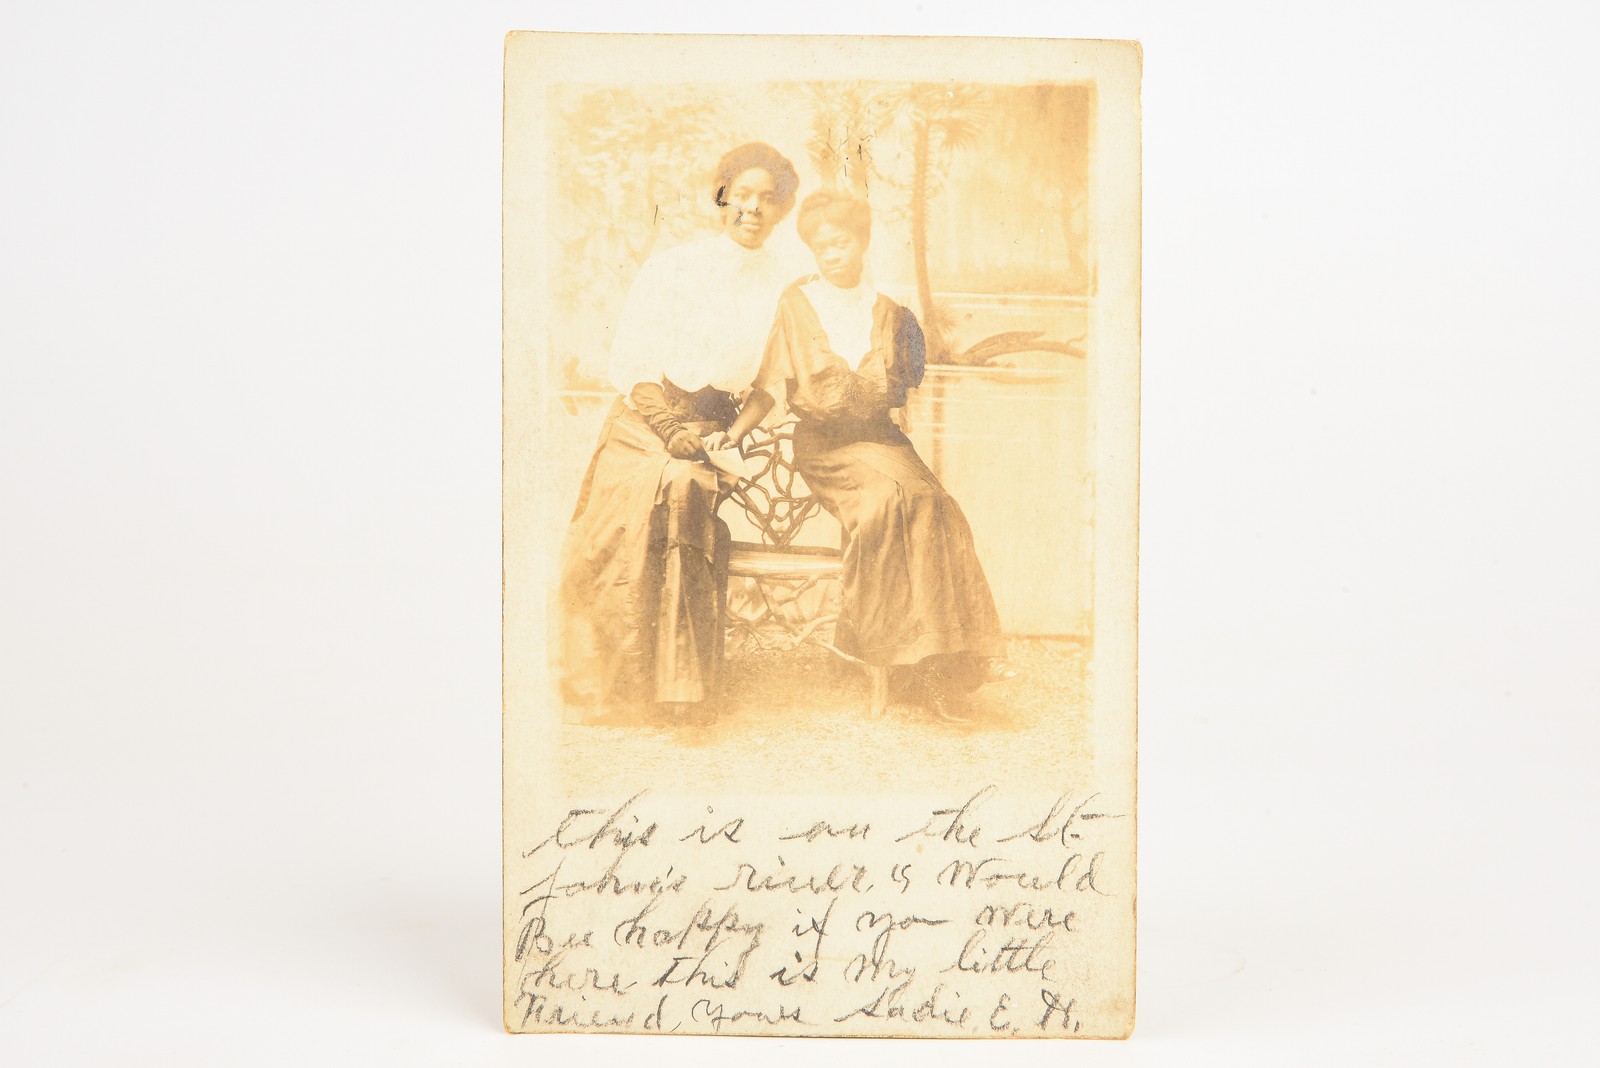 this is on the St-
John's river. is Would
Bee happy if you were
here this is my little
Friend, yours Sadie. E. H.